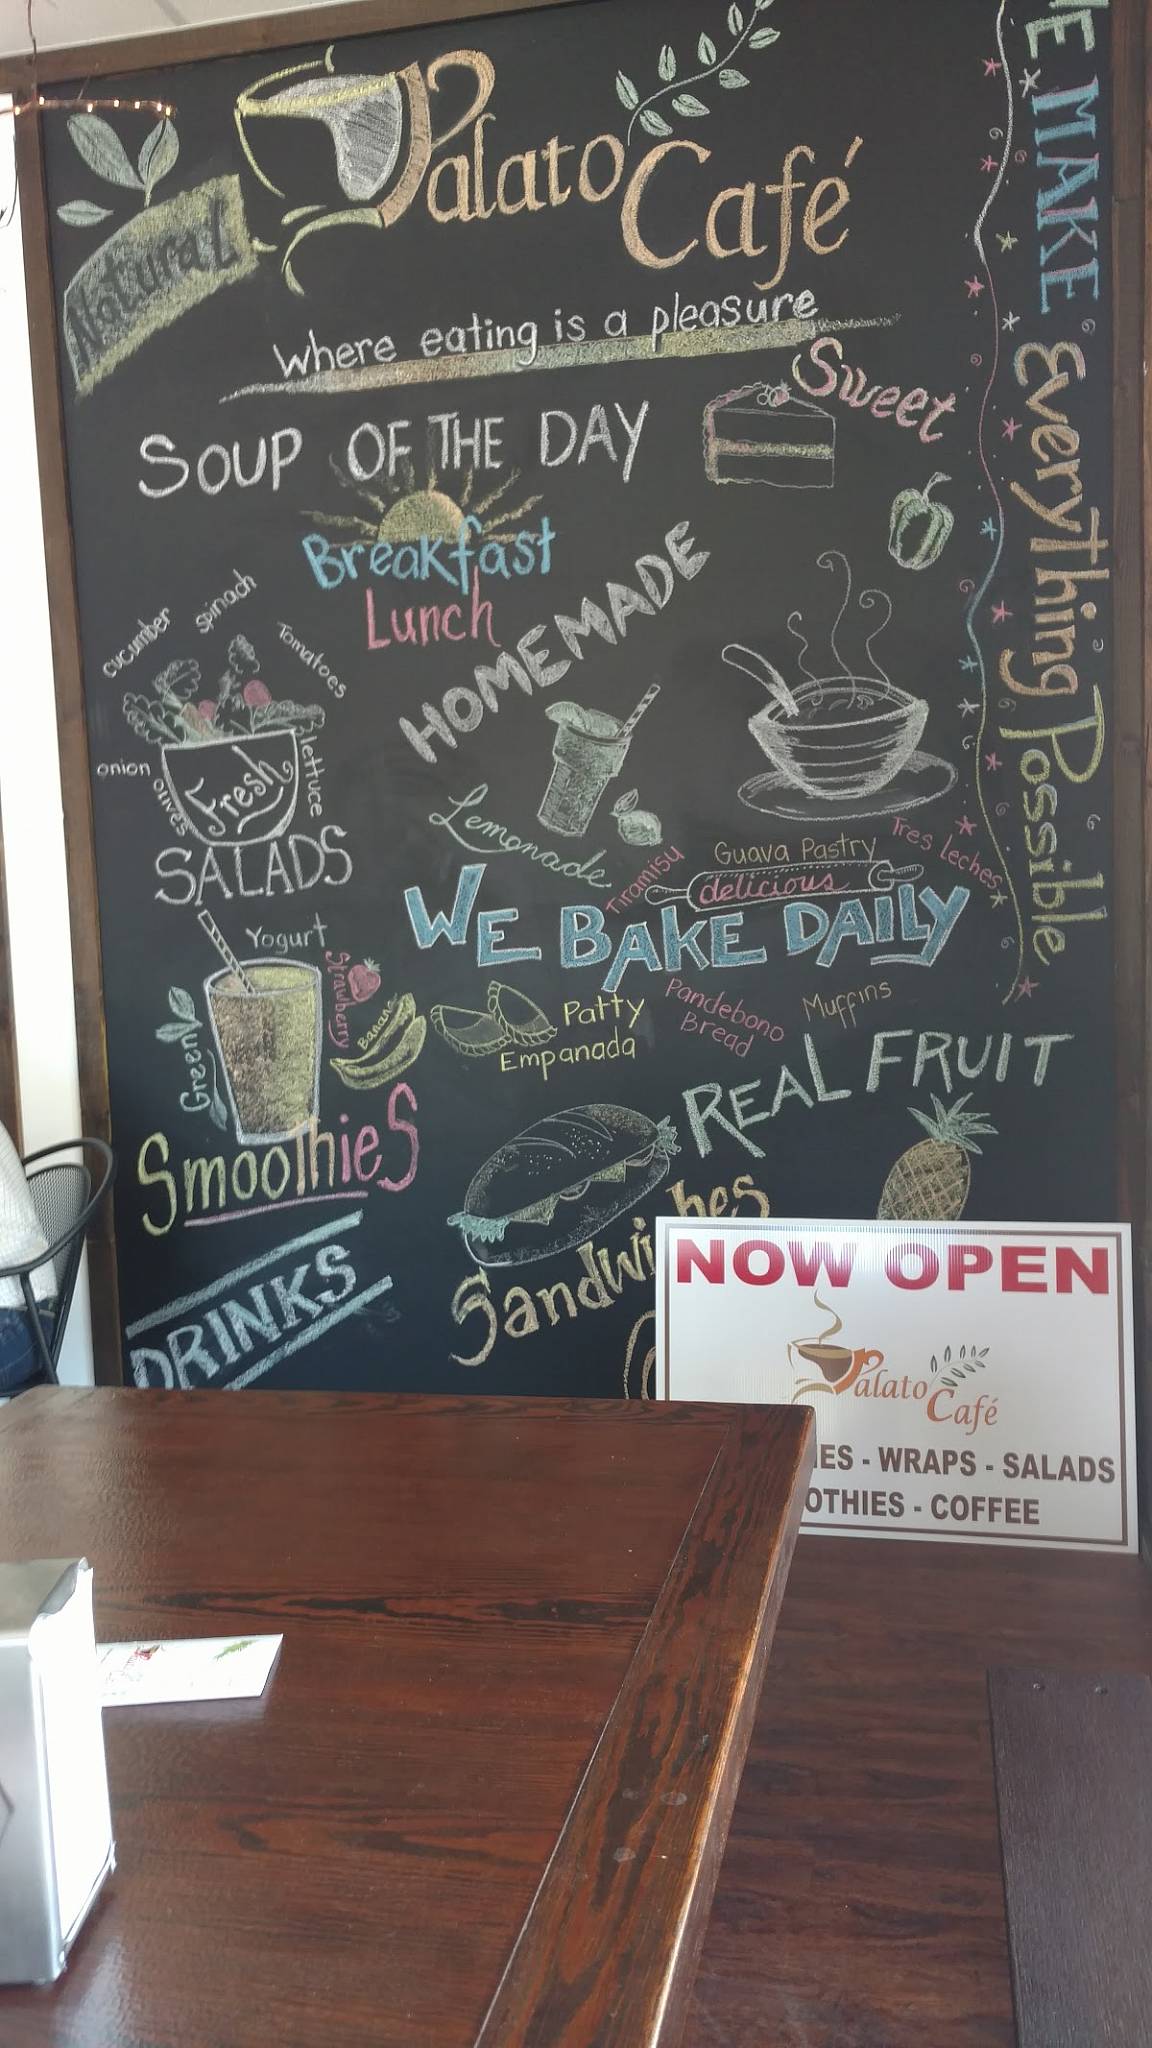 Natural
Palato Café
Where eating is a pleasure
MAKE Everything Possible
Sweet
SOUP OF THE DAY
Breakfast
Lunch
HOMEMADE
Lemonade
cucumber
spinach
Tomatoes
onion
olives
lettuce
Fresh
SALADS
Tiramisu
Guava Pastry
Tres Leches
delicious
WE BAKE DAILY
Patty
Empanada
Pandebono
Bread
Muffins
Yogurt
Strawberry
Banana
Green
Smoothies
REAL FRUIT
Sandwi hes
DRINKS
NOW OPEN
Palato Café
IES - WRAPS - SALADS
OTHIES - COFFEE